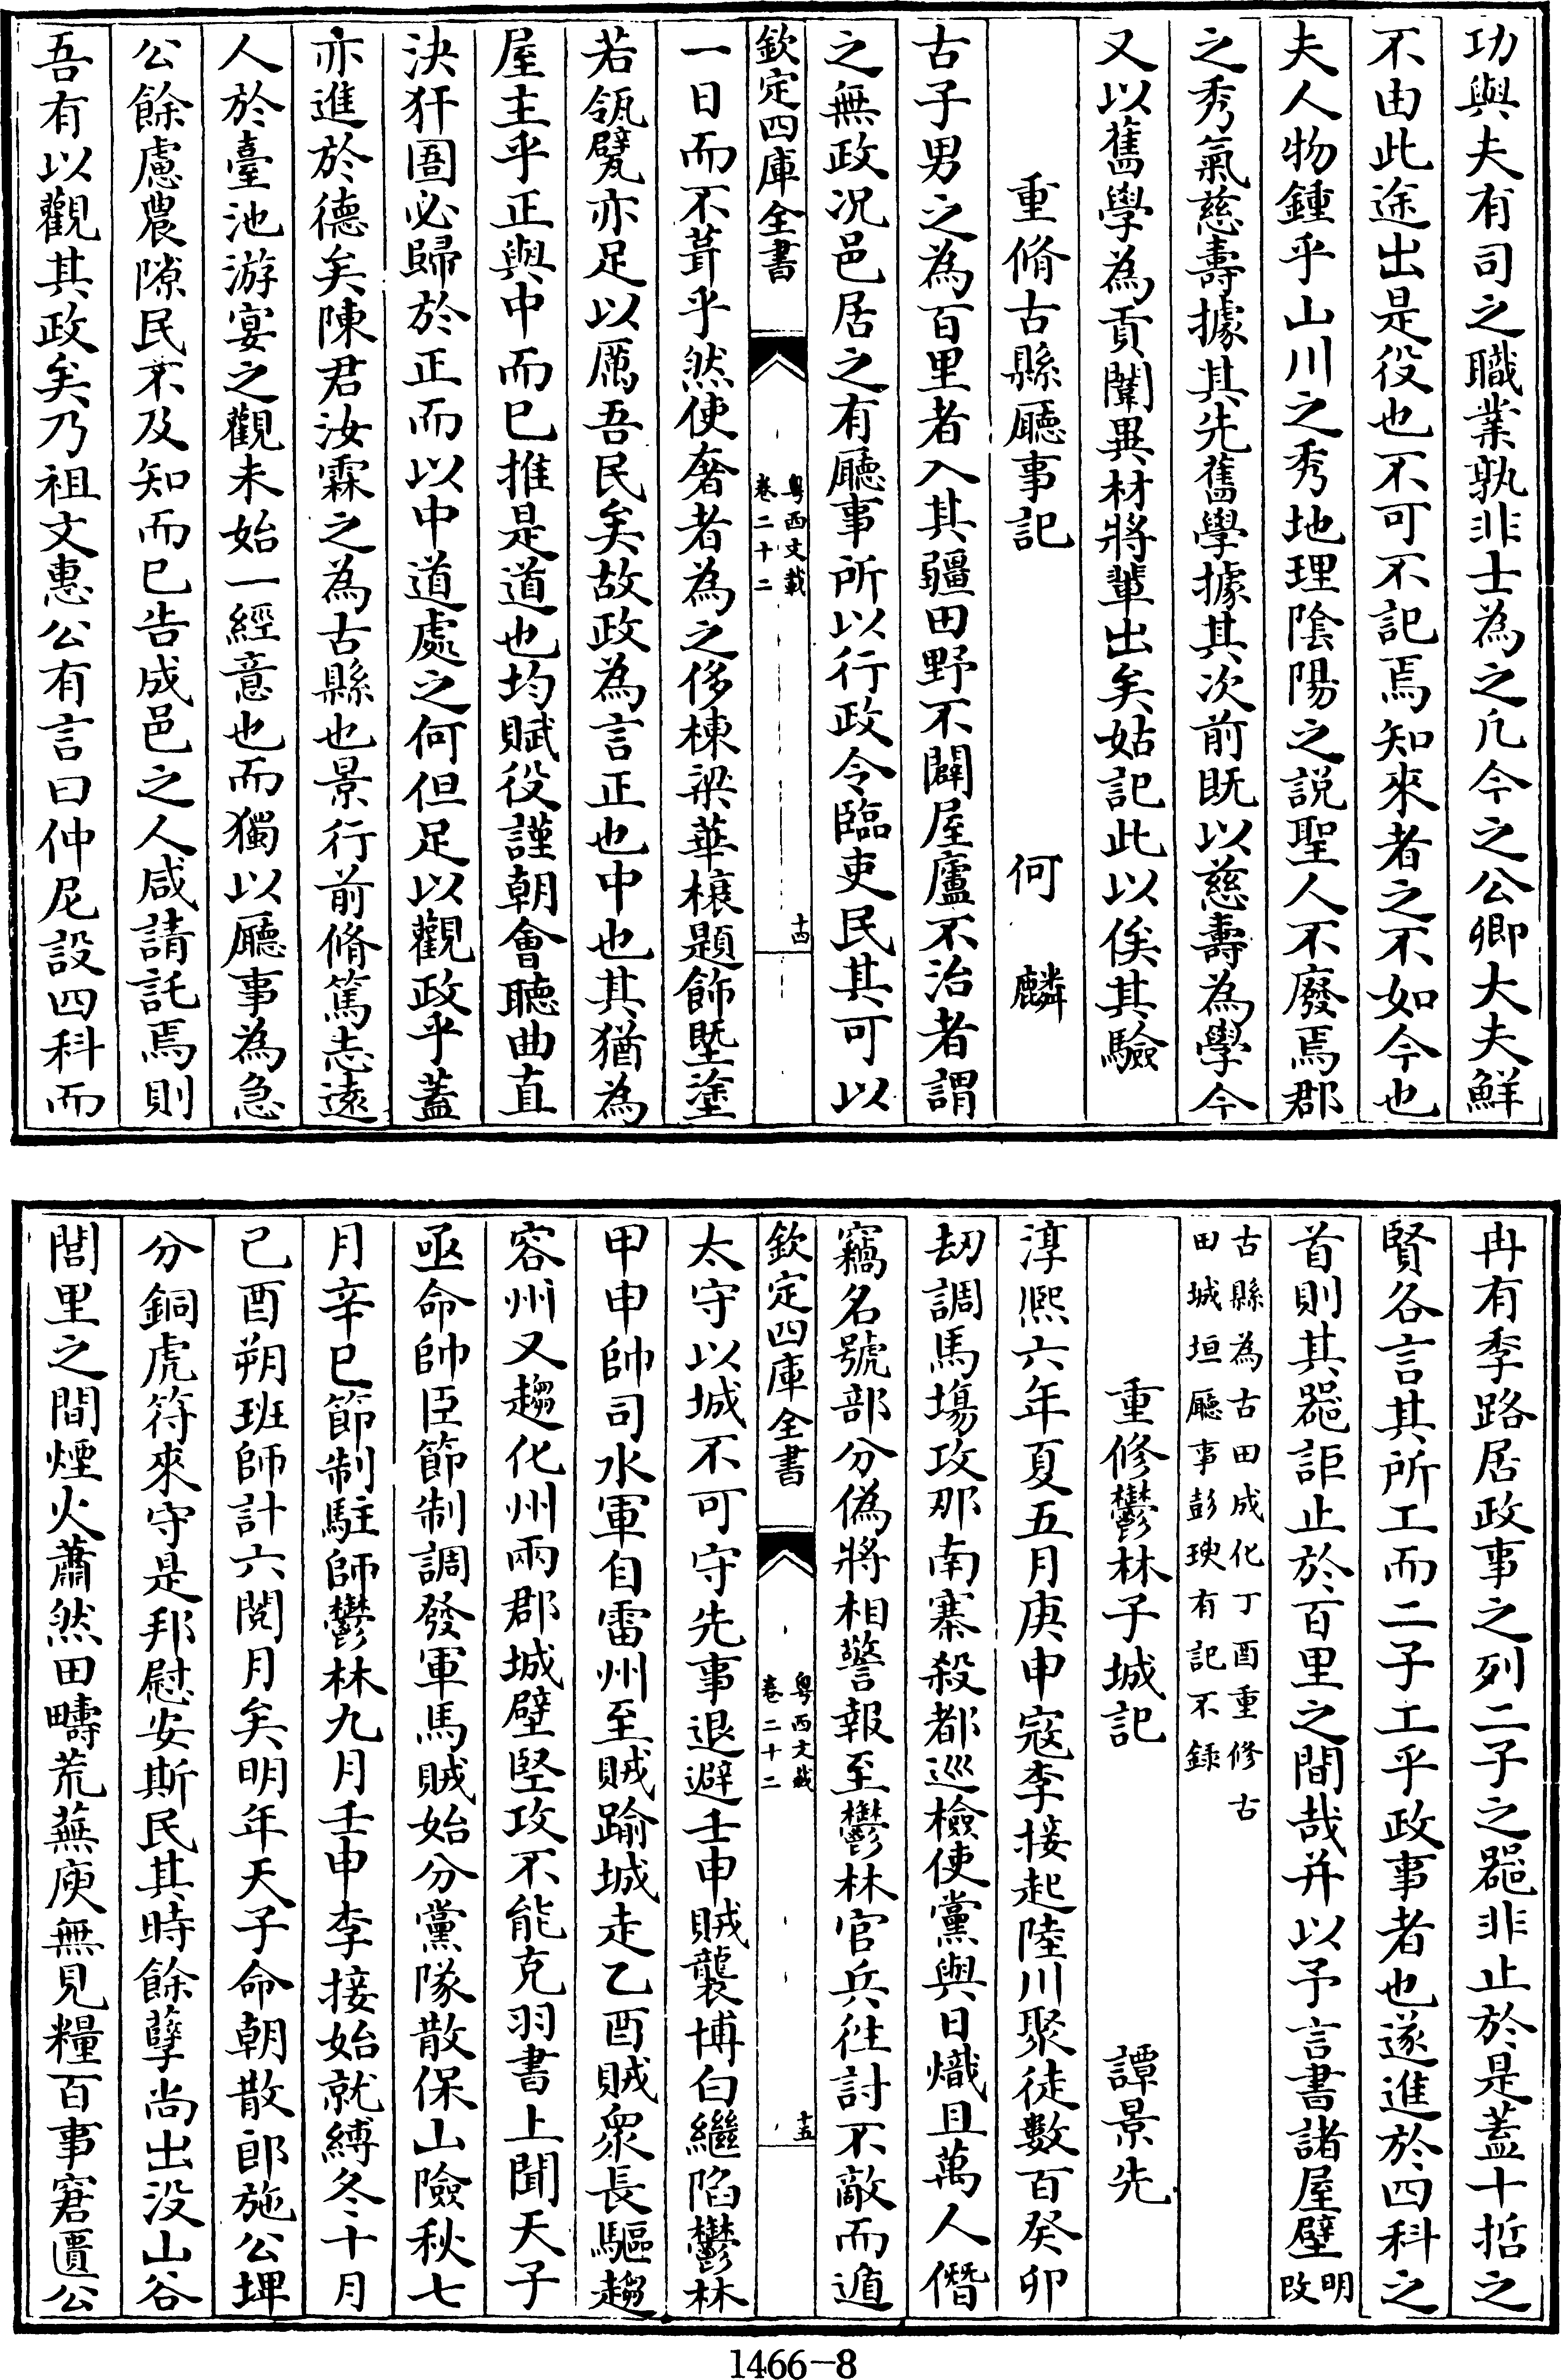 功與夫有司之職業孰非士為之凡今之公卿大夫鮮
不由此途出是役也不可不記焉知來者之不如今也
夫人物鍾乎山川之秀地理陰陽之說聖人不廢焉郡
之秀氣慈壽據其先舊學據其次前既以慈壽為學今
又以舊學為貢闈異材將輩出矣姑記此以俟其驗
重脩古縣廳事記 何麟
古子男之為百里者入其疆田野不闢屋廬不治者謂
之無政况邑居之有廳事所以行政令臨吏民其可以
欽定四庫全書
粵西文載
卷二十二
十四
一日而不葺乎然使奢者為之侈棟梁華榱題飾墍塗
若瓴甓亦足以厲吾民矣故政為言正也中也其猶為
屋主乎正與中而已推是道也均賦役謹朝會聽曲直
決犴圄必歸於正而以中道處之何但足以觀政乎蓋
亦進於德矣陳君汝霖之為古縣也景行前脩篤志遠
人於臺池游宴之觀未始一經意也而獨以廳事為急
公餘慮農隙民不及知而已告成邑之人咸請託焉則
吾有以觀其政矣乃祖文惠公有言曰仲尼設四科而
冉有季路居政事之列二子之器非止於是蓋十哲之
賢各言其所工而二子工乎政事者也遂進於四科之
首則其器詎止於百里之間哉并以予言書諸屋壁明
改
古縣為古田成化丁酉重修古
田城垣廳事彭㻛有記不錄
重修鬱林子城記 譚景先
淳熙六年夏五月庚申寇李接起陸川聚徒數百癸卯
刼調馬塲攻那南寨殺都巡檢使黨與日熾且萬人僭
竊名號部分偽將相警報至鬱林官兵徃討不敵而遁
欽定四庫全書
粵西文載
卷二十二
十五
太守以城不可守先事退避壬申賊襲博白繼陷鬱林
甲申帥司水軍自雷州至賊踰城走乙酉賊衆長驅趨
容州又趨化州兩郡城壁堅攻不能克羽書上聞天子
亟命帥臣節制調發軍馬賊始分黨隊散保山險秋七
月辛巳節制駐師鬱林九月壬申李接始就縛冬十月
己酉朔班師計六閱月矣明年天子命朝散郎施公埤
分銅虎符來守是邦慰安斯民其時餘孽尚出没山谷
閭里之間煙火蕭然田疇荒蕪庾無見糧百事窘匱公
1466-8